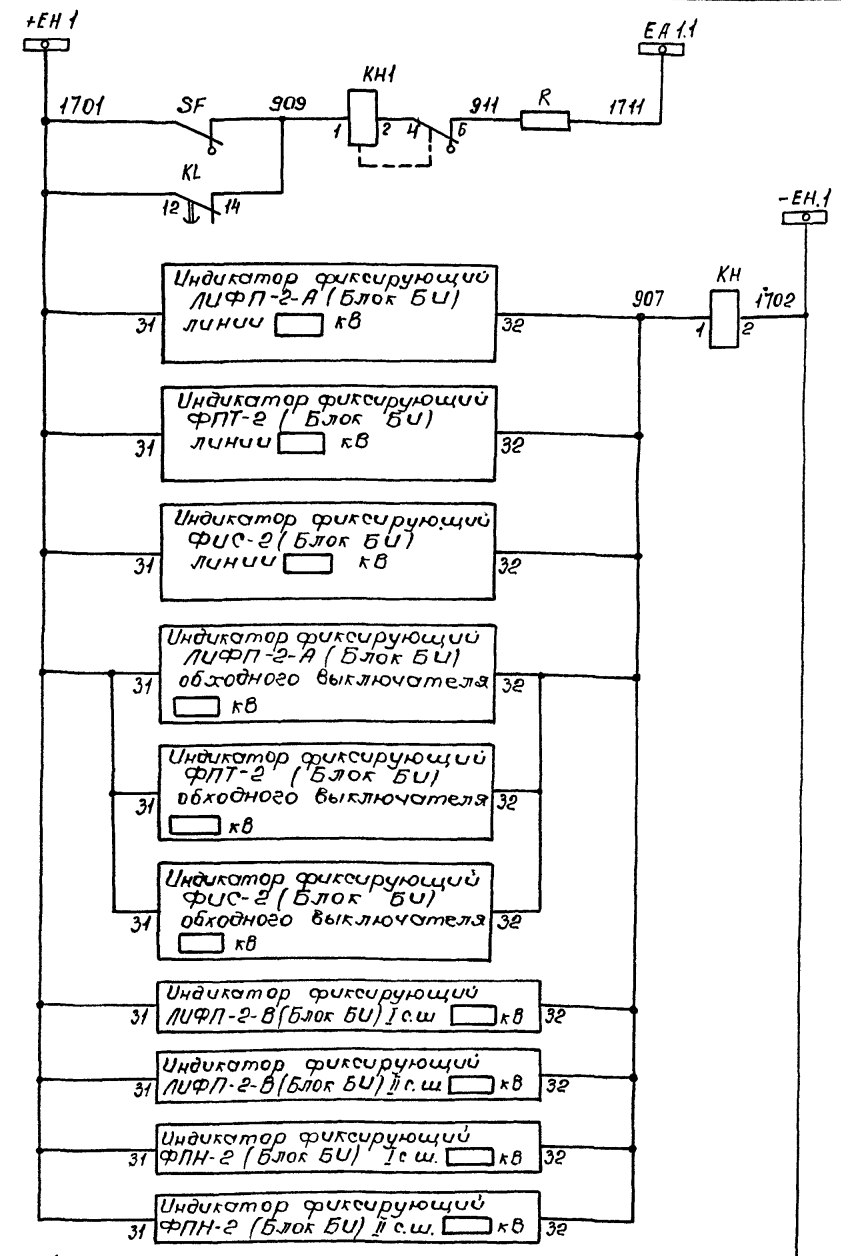 +EH 1
EA 1.1
KH1
1701
SF
909
1
2
4
6
911
R
1711
KL
12
14
-EH.1
KH
907
1
2
1702
Индикатор фиксирующий
ЛИФП-2-А (Блок БИ)
линии кВ
31
32
Индикатор фиксирующий
ФПТ-2 (Блок БИ)
линии кВ
31
32
Индикатор фиксирующий
ФИС-2 (Блок БИ)
линии кВ
31
32
Индикатор фиксирующий
ЛИФП-2-А (Блок БИ)
обходного выключателя
кВ
31
32
Индикатор фиксирующий
ФПТ-2 (Блок БИ)
обходного выключателя
кВ
31
32
Индикатор фиксирующий
ФИС-2 (Блок БИ)
обходного выключателя
кВ
31
32
Индикатор фиксирующий
ЛИФП-2-В (Блок БИ) I с.ш кВ
31
32
Индикатор фиксирующий
ЛИФП-2-В (Блок БИ) II с.ш кВ
31
32
Индикатор фиксирующий
ФПН-2 (Блок БИ) I с ш. кВ
31
32
Индикатор фиксирующий
ФПН-2 (Блок БИ) II с.ш. кВ
31
32